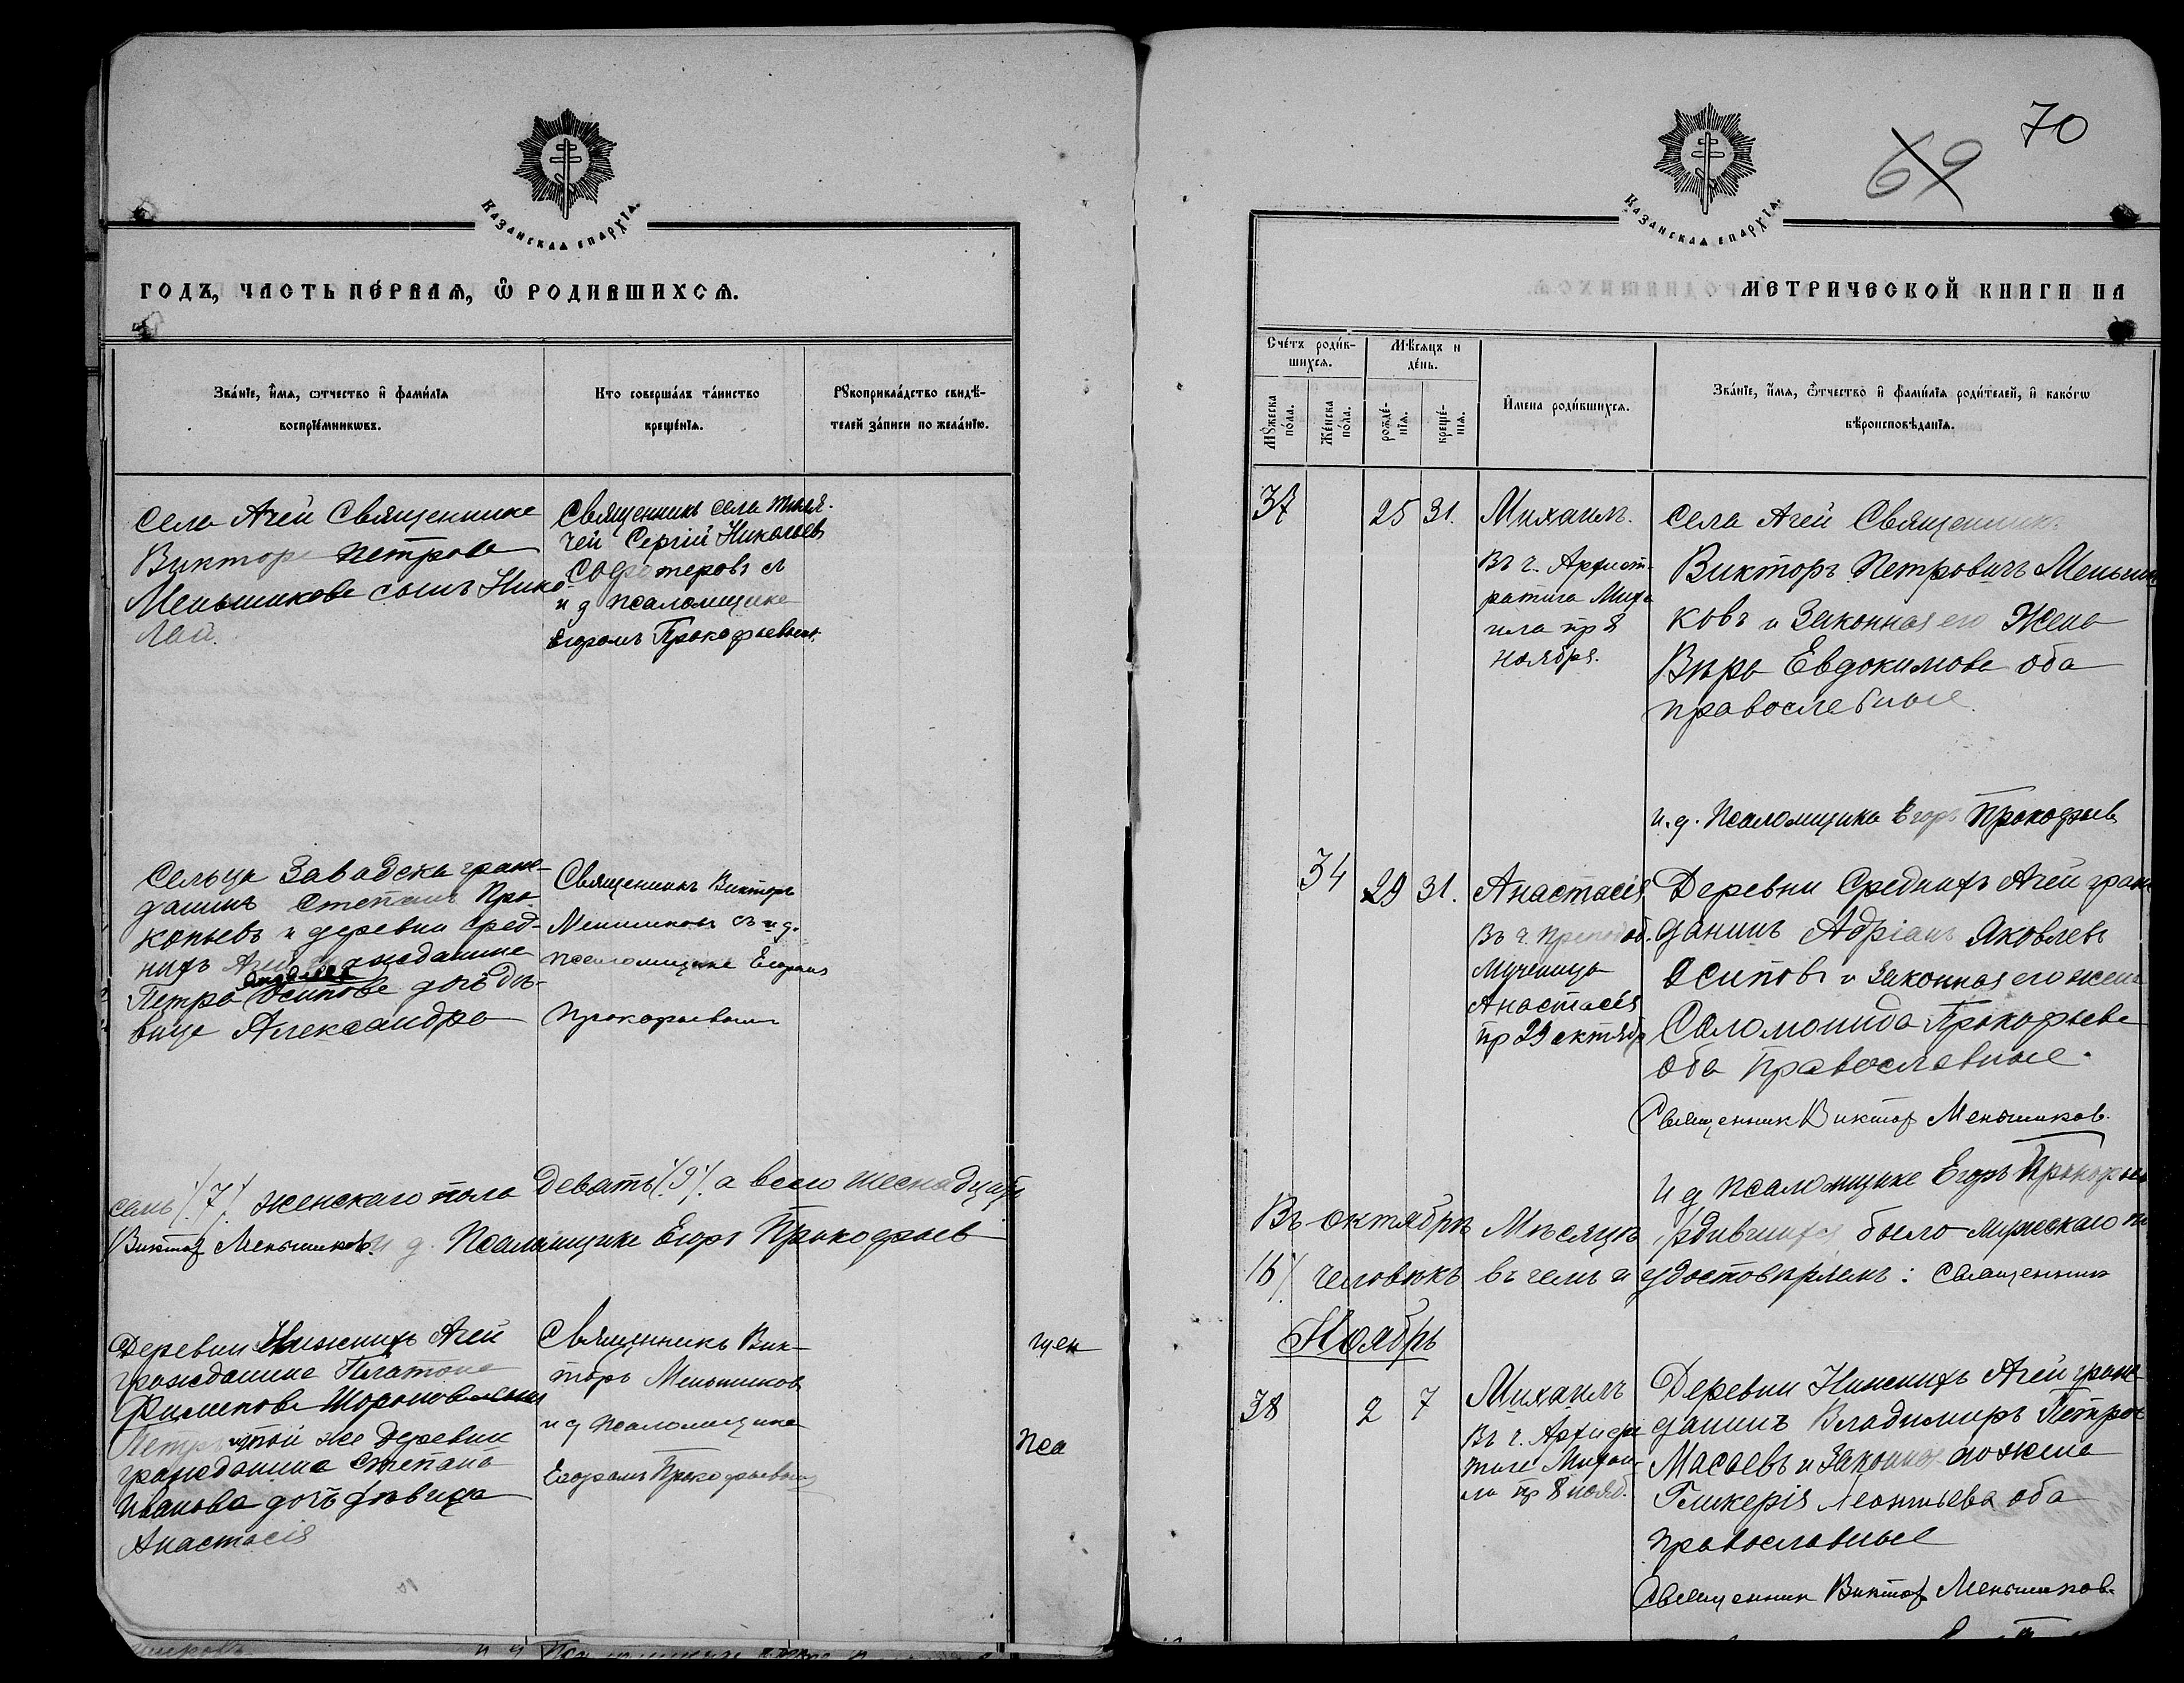 КАЗАНСКАѦ ЕПАРХІѦ.
ГОДЪ, ЧАСТЬ ПЕ́РВАѦ, Ѿ РОДИВШИХСѦ.
Зва́нїе, и҆́мѧ, ѻтчество и҆ фами́лїѧ
воспрїе́мникѡвъ.
Кто соверша́лъ та́инство
креще́нїѧ.
Рꙋкоприкла́дство свидѣ́-
телей за́писи по жела́нїю.
Села Агей Священника
Виктора Петрова
Меньшикова сынъ Нико-
лай.
Священникъ села
чей Сергій Николаевъ
Софотеровъ съ
и д псаломщика
Егоромъ Прокофьевымъ.
Сельца Завадска граж-
данинъ Степанъ Про-
копьевъ и деревни Сред-
нихъ Агей гражданина
Андреева
Петра Осипова дочь дѣ-
вица Александра
Священникъ Викторъ
Меншиковъ съ и д.
псаломщика Егоромъ
Прокофьевымъ
семь /7/ женскаго пола Девать /9/ а всего шеснадцать
Виктор Меньшиковъ. И д. Псаломщика Егоръ Прокофьев
Деревни Нижнихъ Агей
гражданина Платона
Филипова
Петръ и той же деревни
гражданина Степана
Иванова дочь дѣвица
Анастасія
Священникъ Вик-
торъ Меньшиков
и д псаломщика
Егоромъ Прокофьевым
щен
Пса
70
69
КАЗАНСКАѦ ЕПАРХІѦ.
МЕТРИЧЕСКОЙ КНИГИ НА
Сче́тъ роди́в-
шихсѧ.
Мѣ́сѧцъ и
де́нь.
Мꙋ́жеска
по́ла.
Же́нска
по́ла.
рожде́-
нїѧ.
креще́-
нїѧ.
И҆мена роди́вшихсѧ.
Зва́нїе, и҆́мѧ, ѻ҆́тчество и҆ фами́лїѧ роди́телей, и҆ како́гѡ
вѣроисповѣ́данїѧ.
37 25 31. Михаилъ.
Въ ч. Архист-
ратига Миха
ила пр 8
ноября.
Села Агей Священникъ
Викторъ Петровичъ Меньши
ковъ и Законная его Жена
Вѣра Евдокимова оба
православные.
и. д. Псаломщика Егоръ Прокофьев
34 29 31. Анастасія
Въ ч. Преподоб.
Мученица
Анастасія
пр 29 октябр
Деревни Среднихъ Агей граж
данинъ Адріанъ Яковлевъ
Осиповъ и Законная его жена
Соломонида Прокофьева
оба Православные.
Священник Виктор Меньшиков.
И д псаломщика Егоръ Прокофьев
Въ октябрѣ Мѣсяцѣ рдившихся было мужескаго по
16/ человѣкъ въ чемъ и удостовѣряемъ: Священникъ
Ноябрь
38 2 7 Михаилъ
Въ ч. Архистра
тига Михаи-
ла пр 8 нояб.
Деревни Нижнихъ Агей граж-
данинъ Владимиръ Петров
Масаевъ и Законная его жена
Гликерія Леонтьева оба
православные
Священник Виктор Меньшиков.